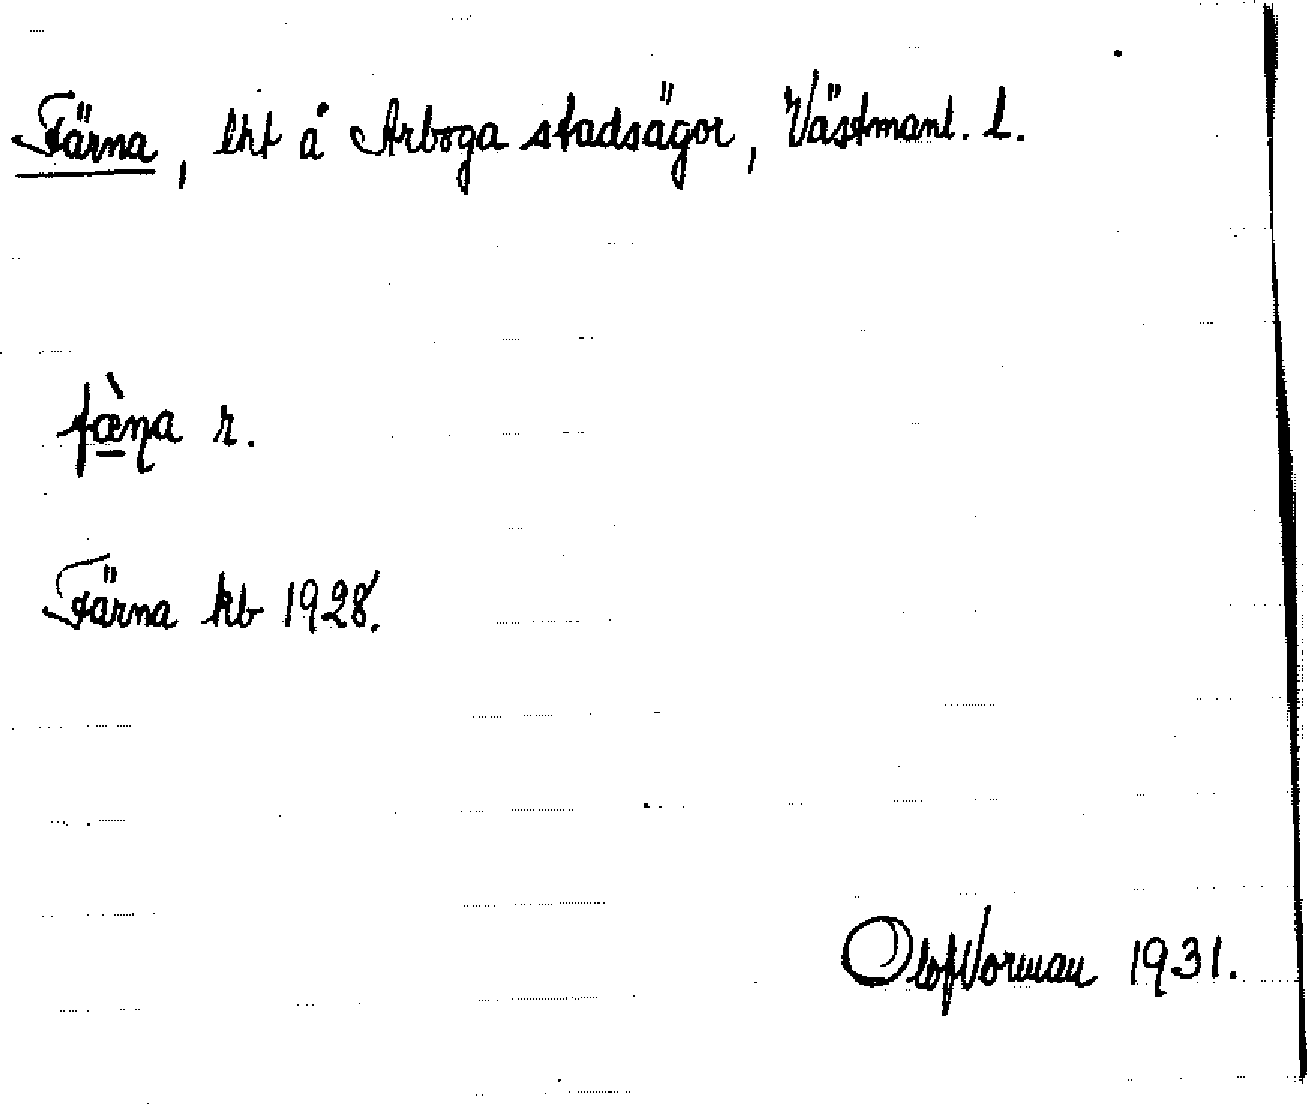 Färna, lht å Arboga stadsägor, Västmanl. l.
fæ̀ṇa r.
Färna kb 1928.
Olof Vorman 1931.